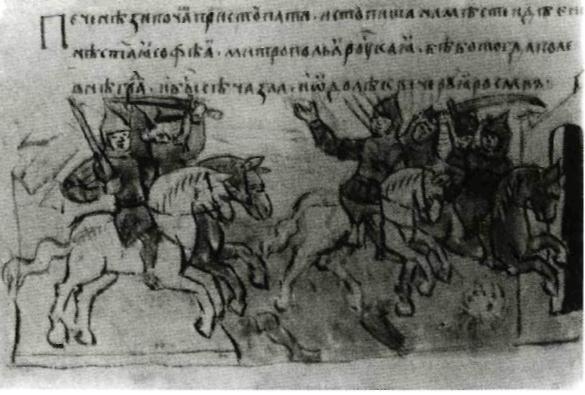 Печенѣзи поча пристꙋпати · и стꙋпиша на мѣсте идѣ е н
нѣ стаꙗ софѣꙗ · митропольꙗ роускаꙗ · бѣ бо тогда поле
внѣ гра · и бы сѣча зла · и ѡдолѣ к вечерꙋ ꙗрославъ :